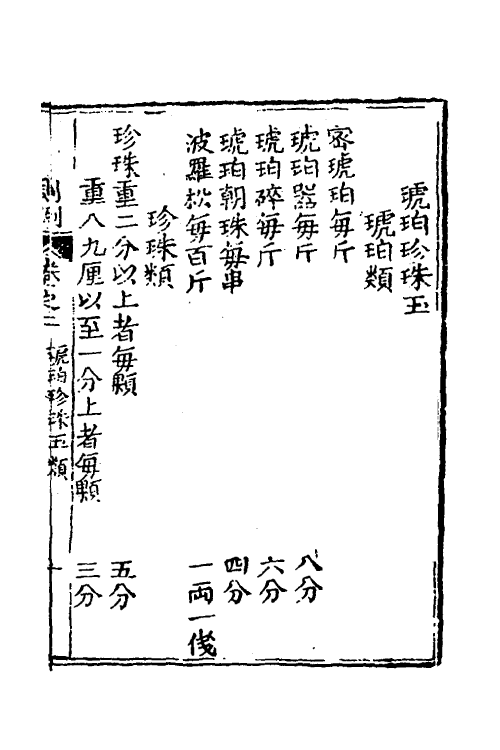 琥珀珍珠玉
琥珀類
密琥珀每斤
琥珀器每斤 八分
琥珀碎每斤 六分
琥珀朝珠每串 四分
波羅松每百斤 一両一㦮
珍珠類
珍珠重二分以上者每顆 五分
重八九厘以至一分上者每顆 三分
則例 卷之二 琥珀珍珠玉類